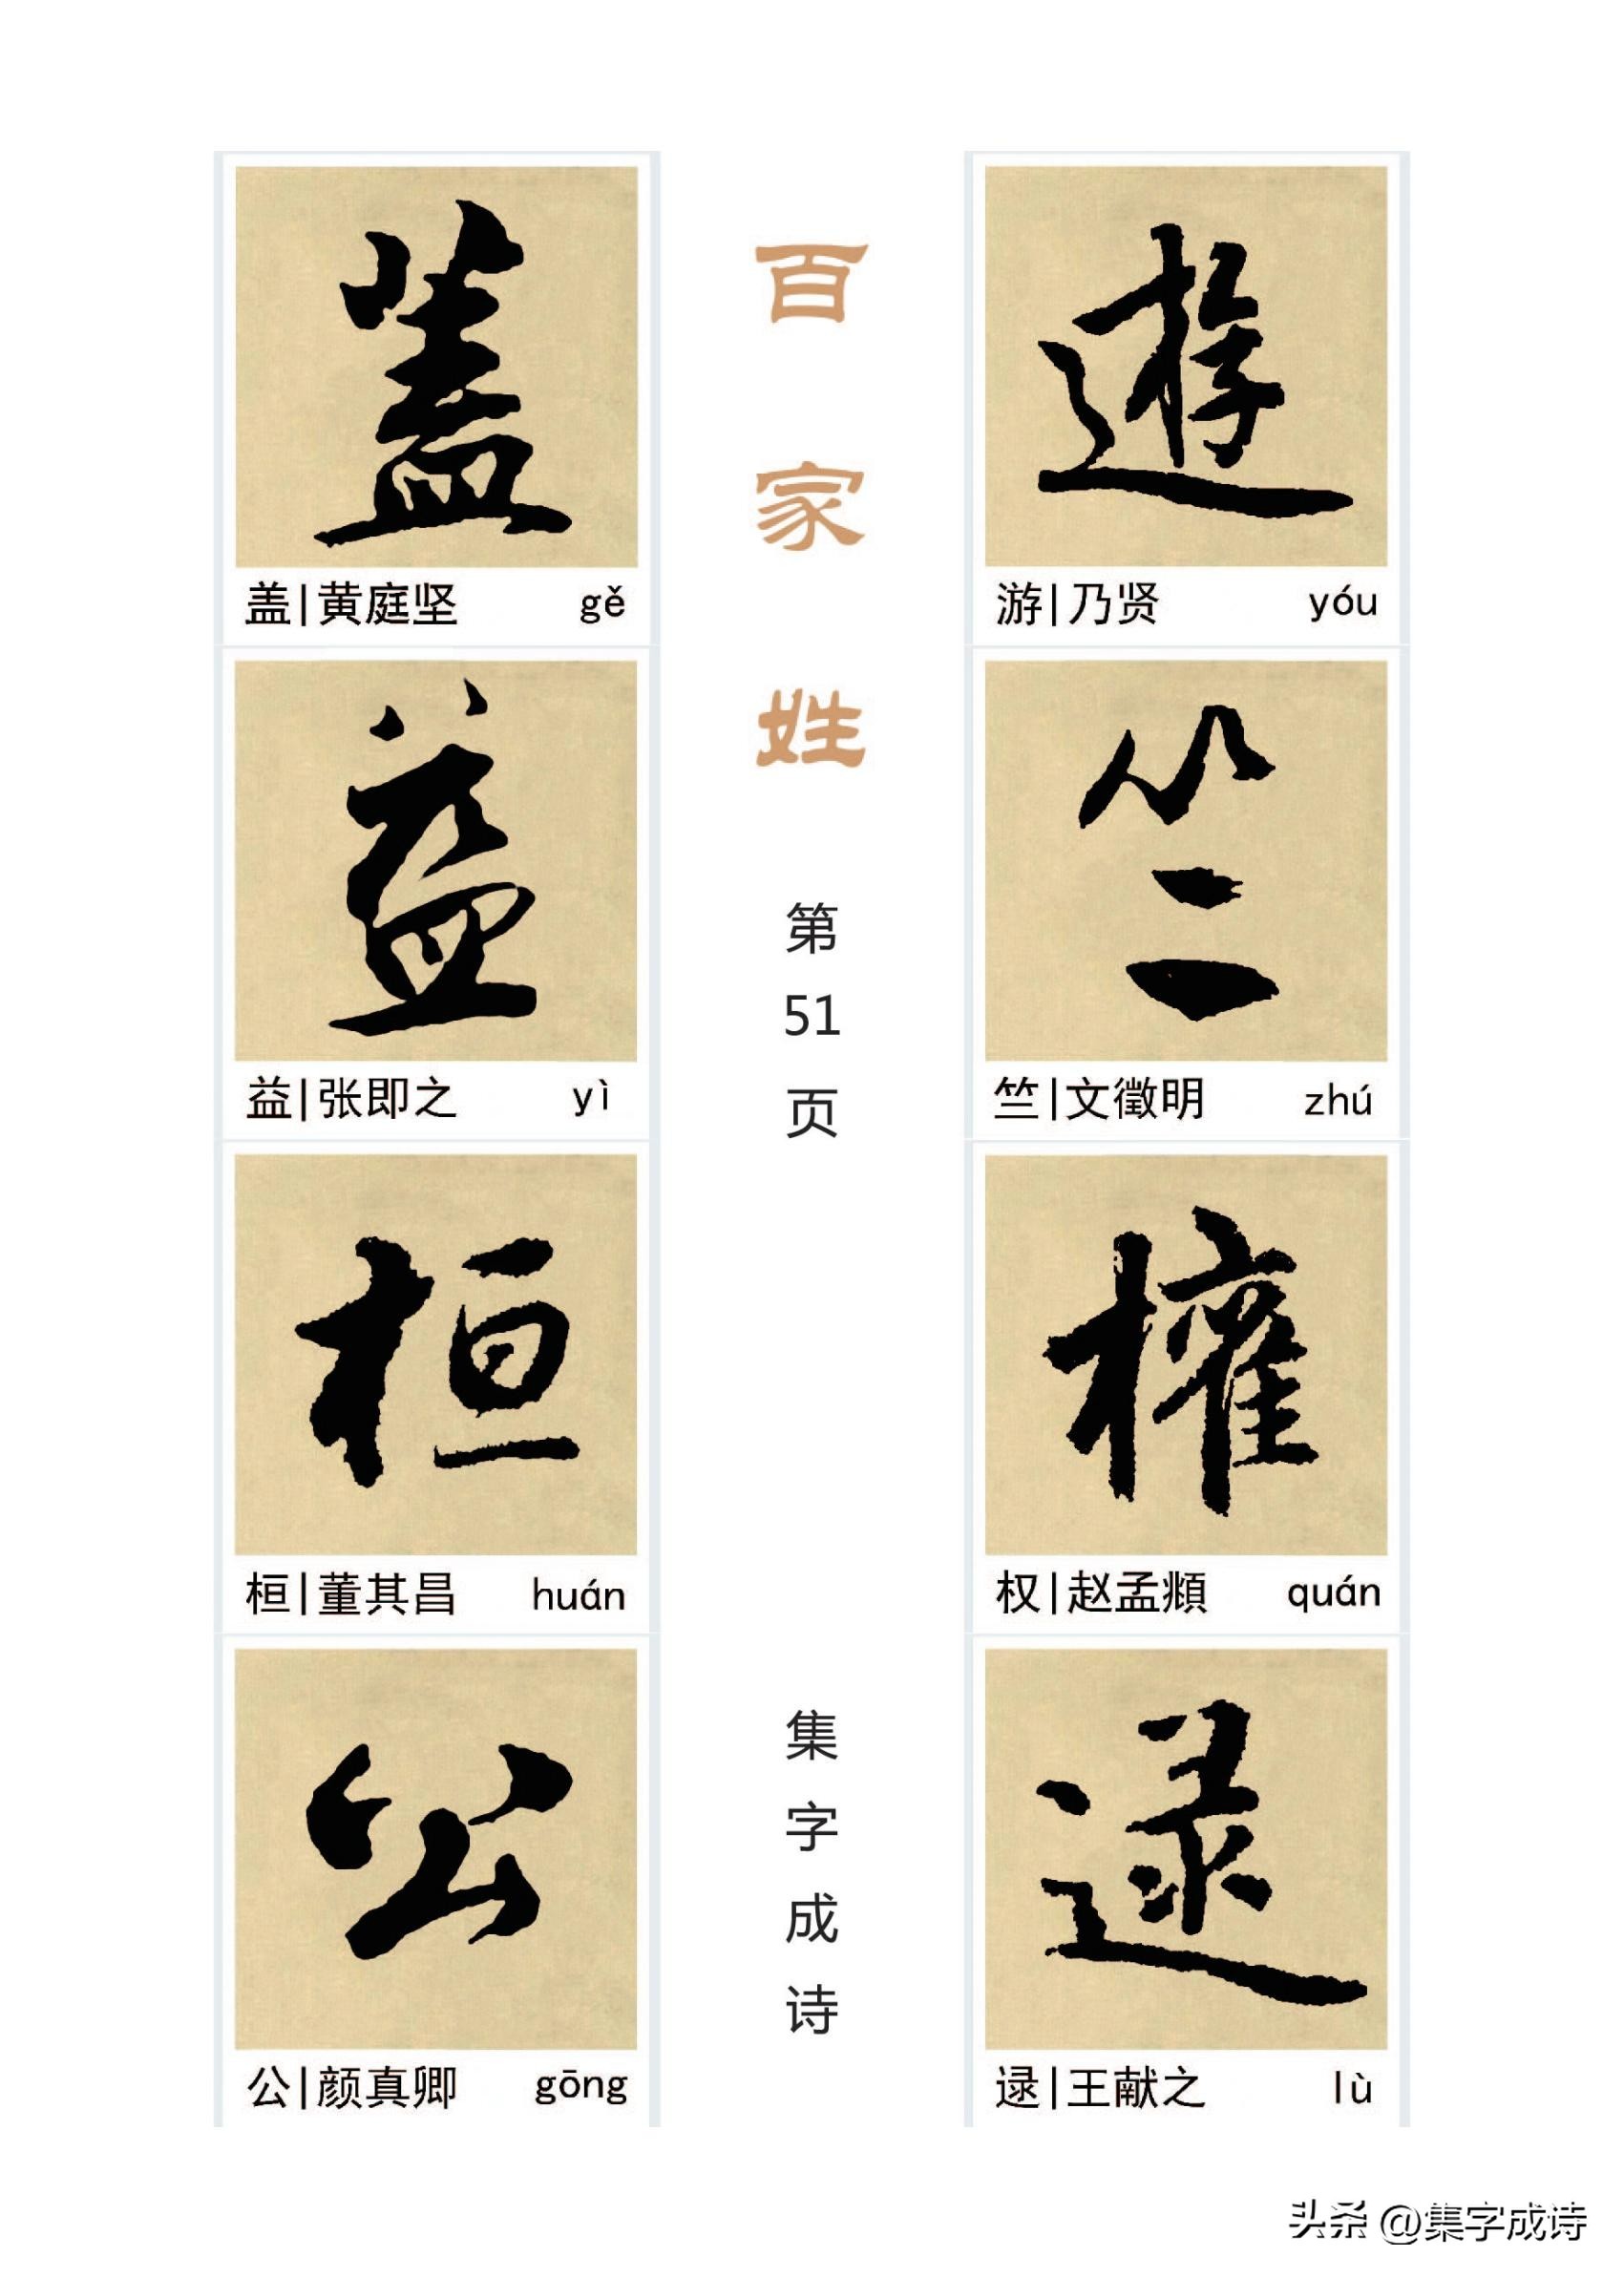 遊
游|乃贤 yóu
竺
竺|文徵明 zhú
權
权|赵孟頫 quán
逯
逯|王献之 lù
百家姓
第51页
集字成诗
蓋
盖|黄庭坚 gě
益
益|张即之 yì
桓
桓|董其昌 huán
公
公|颜真卿 gōng
头条 @集字成诗